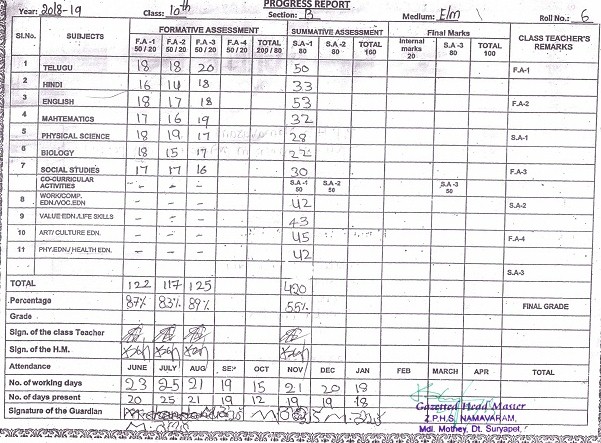 PROGRESS REPORT
Year: 2018-19 Class: 10th Section: B Medium: E/m Roll No.: 6
Sl.No. SUBJECTS FORMATIVE ASSESSMENT SUMMATIVE ASSESSMENT Final Marks CLASS TEACHER'S REMARKS
F.A-1 50/20 F.A-2 50/20 F.A-3 50/20 F.A-4 50/20 TOTAL 200/80 S.A-1 80 S.A-2 80 TOTAL 160 Internal marks 20 S.A-3 80 TOTAL 100
1 TELUGU 18 18 20 50 F.A-1
2 HINDI 16 14 18 33
3 ENGLISH 18 17 18 53 F.A-2
4 MAHTEMATICS 17 16 19 32
5 PHYSICAL SCIENCE 18 19 17 28 S.A-1
6 BIOLOGY 18 15 17 22
7 SOCIAL STUDIES 17 17 16 30 F.A-3
CO-CURRICULAR ACTIVITIES - - - S.A-1 50 S.A-2 50 S.A-3 50
8 WORK/COMP. EDN./VOC.EDN - - - 42 S.A-2
9 VALUE EDN./LIFE SKILLS - - - 43
10 ART/ CULTURE EDN. - - - 45 F.A-4
11 PHY.EDN./HEALTH EDN. - - - 42
S.A-3
TOTAL 122 117 125 420
Percentage 87% 83% 89% 55% FINAL GRADE
Grade
Sign. of the class Teacher
Sign. of the H.M.
Attendance JUNE JULY AUG SEP OCT NOV DEC JAN FEB MARCH APR TOTAL
No. of working days 23 25 21 19 15 21 20 18
No. of days present 20 25 21 19 12 19 19 18
Signature of the Guardian
Gazetted Head Master
Z.P.H.S. NAMAVARAM,
Mdl. Mothey, Dt. Suryapet,